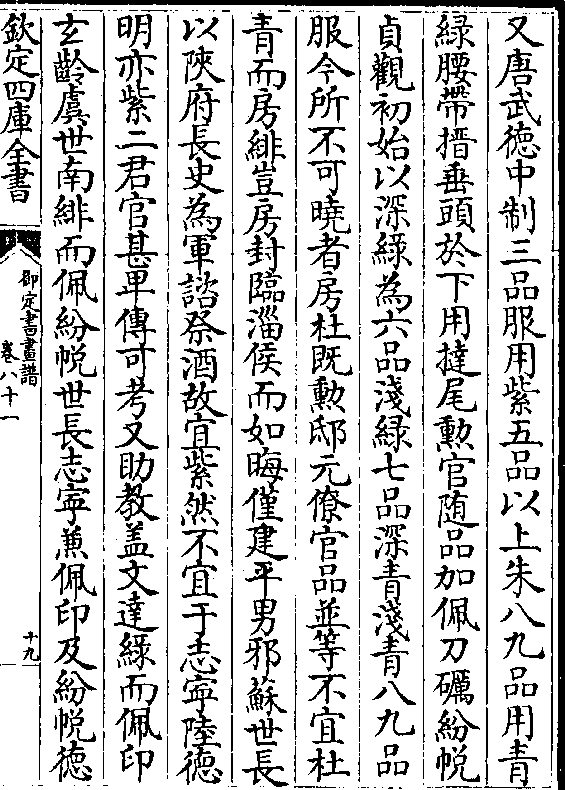 又唐武徳中制三品服用紫五品以上朱八九品用青
緑腰帶搢垂頭於下用撻尾勲官随品加佩刀礪紛帨
貞觀初始以深緑為六品淺緑七品深青淺青八九品
服今所不可曉者房杜既勲邸元僚官品並等不宜杜
青而房緋豈房封臨淄侯而如晦僅建平男邪蘇世長
以陜府長史為軍諮祭酒故宜紫然不宜于志寜陸徳
明亦紫二君官甚卑傳可考又助教盖文達緑而佩印
玄齡虞世南緋而佩紛帨世長志寜兼佩印及紛帨徳
欽定四庫全書
御定書畫譜
卷八十一
十九